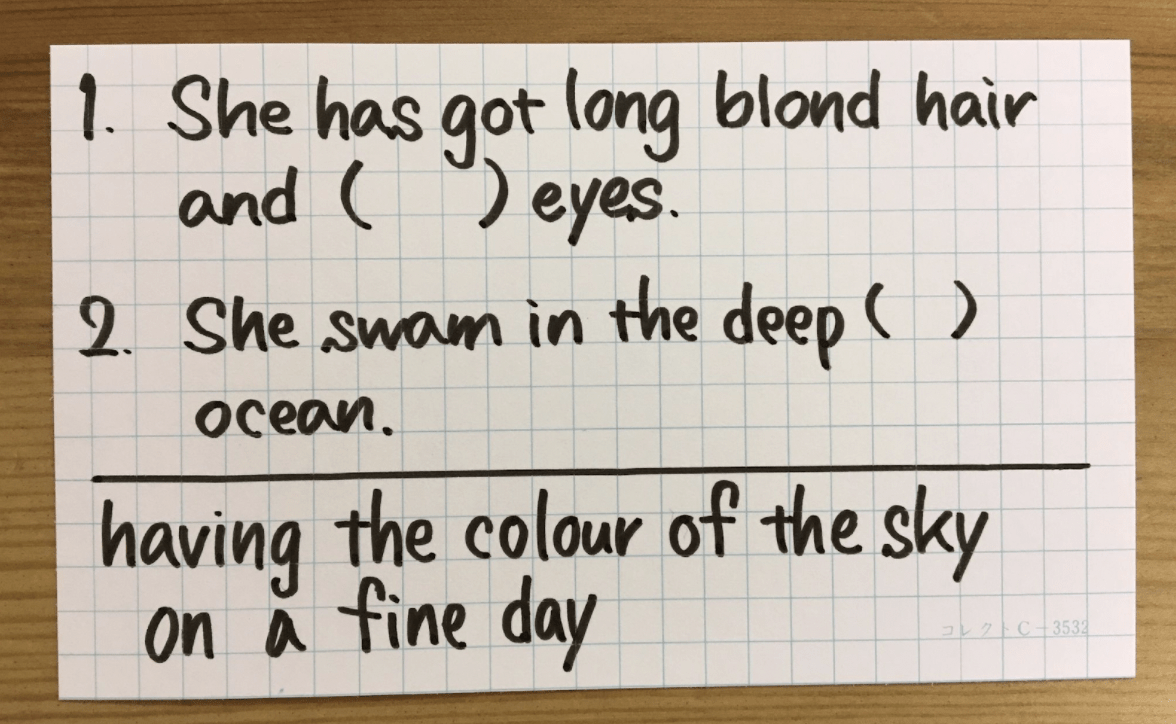 1. She has got long blond hair
and (    ) eyes.
2. She swam in the deep (  )
ocean.
having the colour of the sky
on a fine day
コレクト C-3532